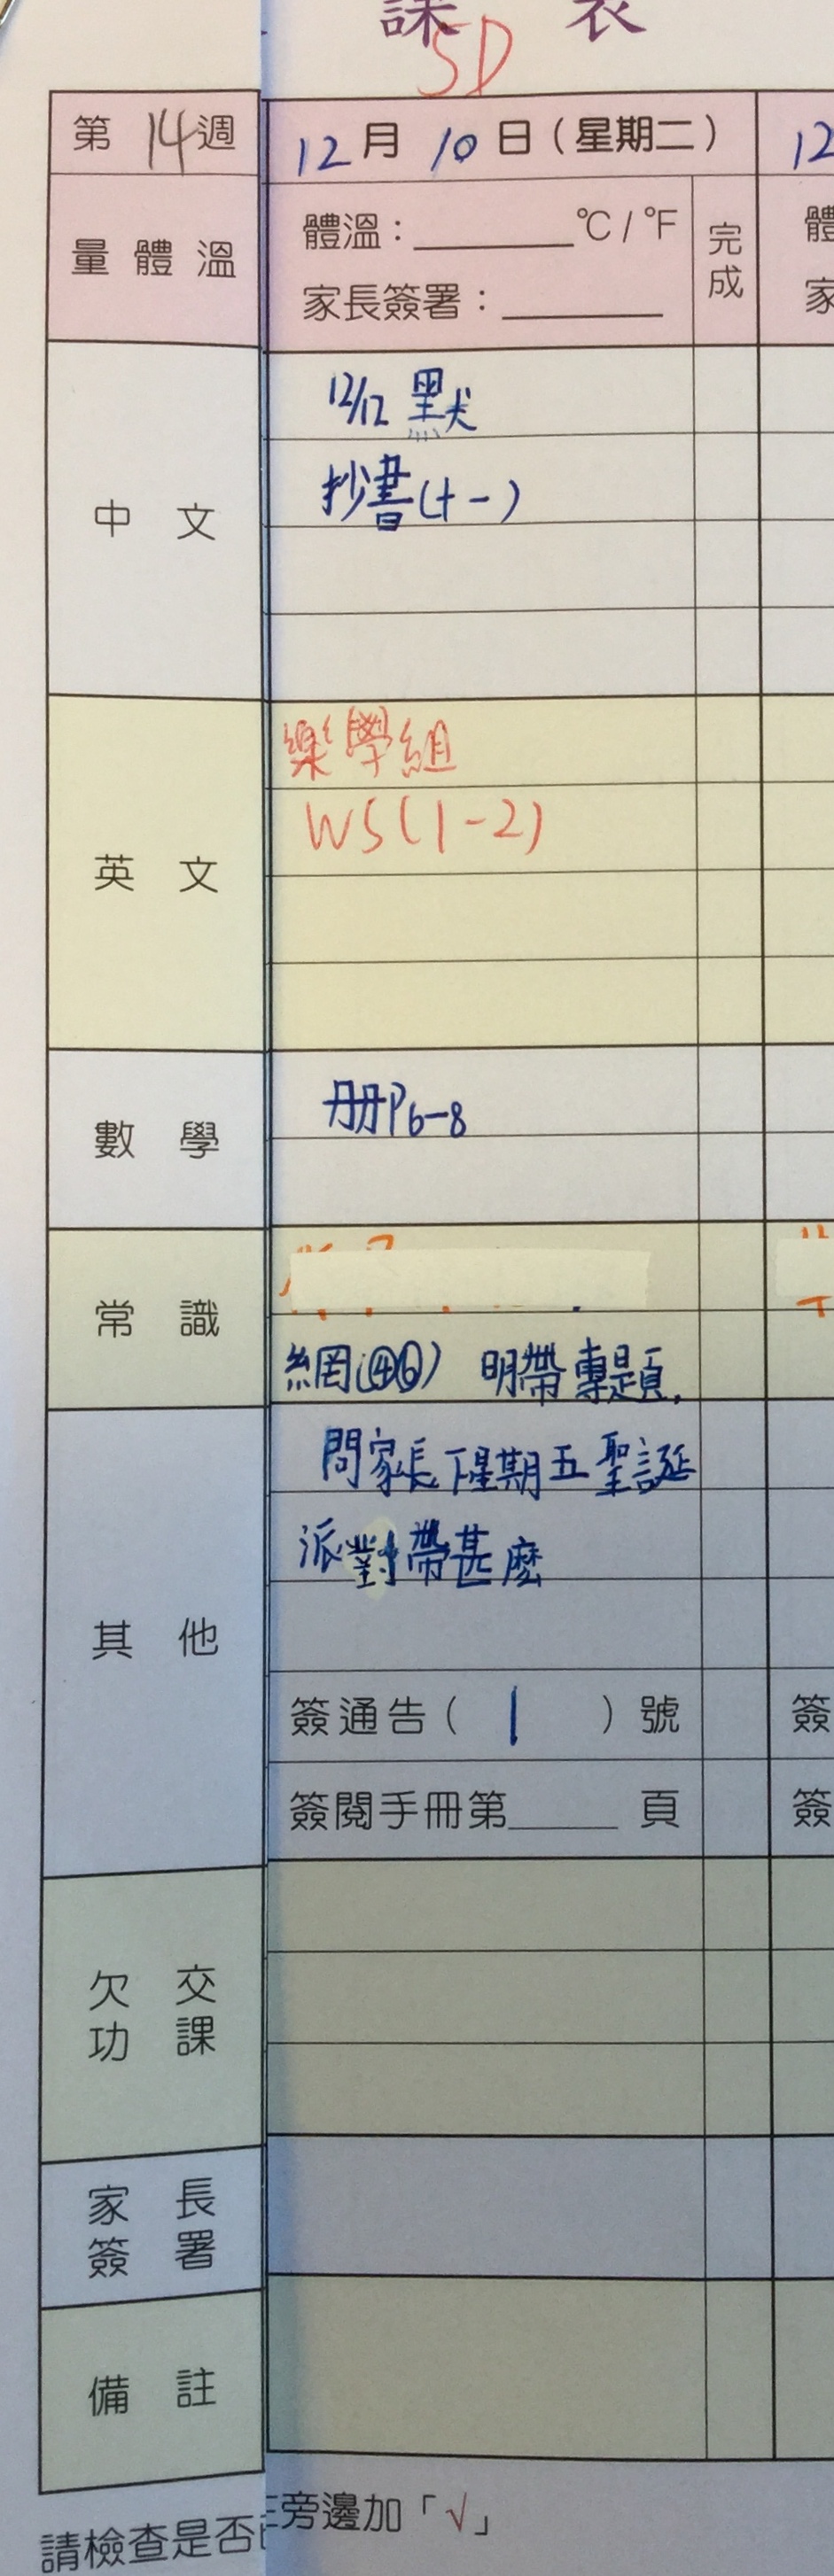 課 表
5D
第 14 週
12月10日(星期二)
12
量體溫
體溫：______°C / °F
完成
體
家長簽署：______
家
中文
12/12 默
抄書(十一)
英文
樂學組
WS(1-2)
數學
册P6-8
常識
網(④⑥) 明帶專題.
其他
問家長下星期五聖誕
派對帶甚麼
簽通告( 1 )號
簽
簽閱手冊第____頁
簽
欠交功課
家長簽署
備註
請檢查是否
旁邊加「√」